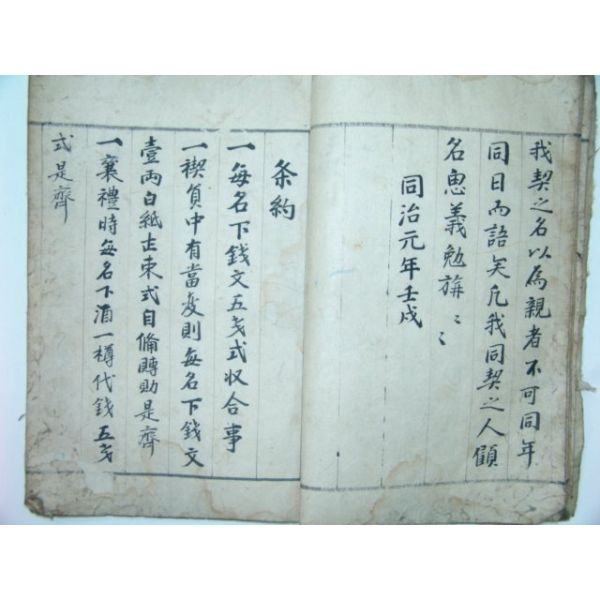 我契之名以爲親者不可同年
同日而語矣凡我同契之人顧
名思義勉旃〻〻
同治元年壬戌
条約
一每名下錢文五戔式收合事
一禊員中有當変則每名下錢文
壹兩白紙壱束式自俻賻助是齊
一襄禮時每名下酒一樽代錢五戔
式是齊